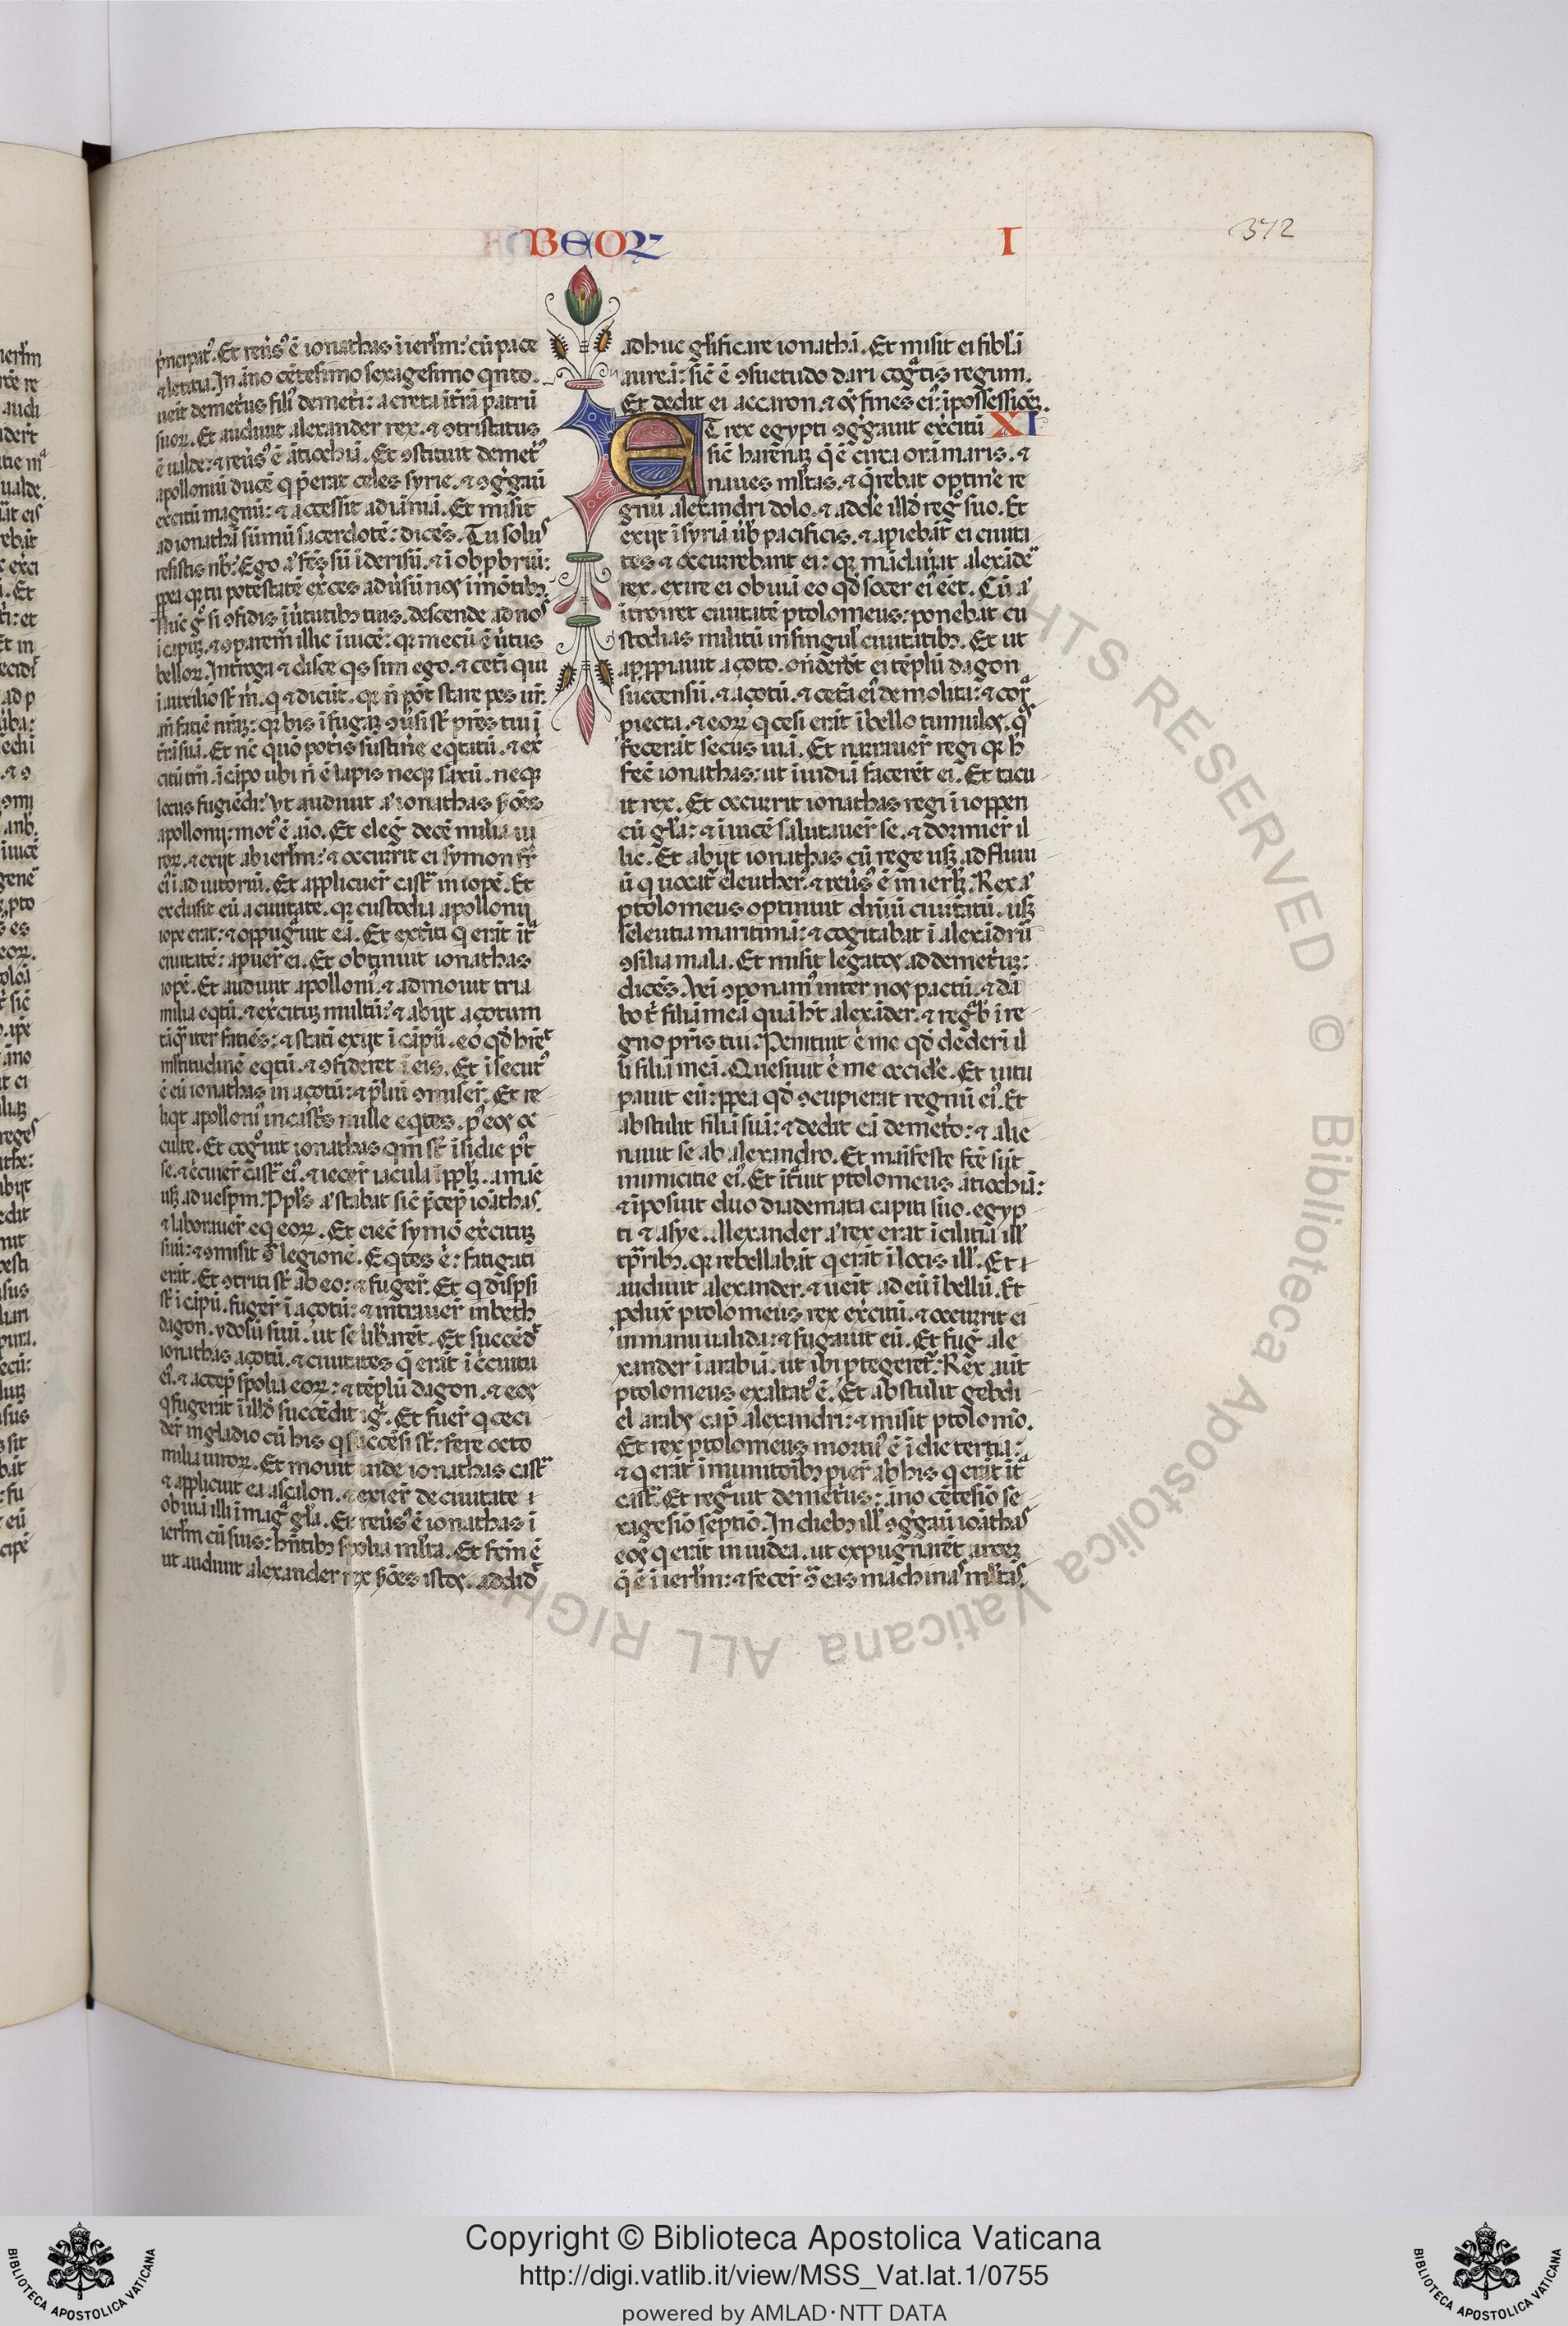 BEOꝜ
I
372
p̾ncipat᷒. Et reu᷒s᷒ ē ionathas ī ierl̄m: cū pace
⁊ letitia. In āno cētesimo sexagesimo qnto.
ueīt demetri᷒us fili᷒ demetri: a creta ī tr̄ā patrū
suoꝝ. Et audiuit alexander rex. ⁊ ꝯtristatus
ē ualde: ⁊ reu᷒s᷒ ē ātiochiā. Et ꝯstituit demetr᷒
apolloniū ducē q p̄erat celes syrie. ⁊ ꝯg̾gauī
exc̾itū magnū: ⁊ accessit ad iāniā. Et misit
ad ionathā sūmū sacerdotē: dicēs. Tu solus
resistis nb̄. Ego a᷒ fc̄s sū ī derisū. ⁊ ī obprbriū:
ꝓpea qꝛ tu potestatē exc̾es adu᷒sū nos ī mōtibꝫ.
Nūc g̊ si ꝯfidis ī u᷒tutibꝫ tuis. descende ad nos
ī cāpū. ⁊ ꝯparem᷒ illic īuicē: qꝛ mecū ē u᷒tus
belloꝝ. Int̾roga ⁊ disce qs sim ego. ⁊ cet̾i qui
ī auxilio st̄ m̄. q ⁊ dicūt. qꝛ n̄ pōt stare pes ur̄.
an̄ faciē nr̄aꝫ: qꝛ bis ī fugaꝫ ꝯu᷒si st̄ pr̄es tui ī
tr̄a sua. Et nc̄ quō pot̾is sustin̾e eqtatū. ⁊ exc̾
citū tm̄. ī cāpo ubi n̄ ē lapis neqꝫ saxū. neqꝫ
locus fugiēdi. Vt audiuit a᷒ ionathas s̾mōes
apollonij: mot᷒ ē aīo. Et eleg̾ decē milia ui
roꝝ. ⁊ exijt ab ierl̄m: ⁊ occurrit ei symon fr̄
ei᷒ ī adiutoriū. Et applicuer̄ castr̄ in iopē. Et
exclusit eū a ciuitate. qꝛ custodia apollonij
iope erat: ⁊ oppug̾uit eā. Et ext̾iti q erāt ītr̄
ciuitatē: apuer̄ ei. Et obtinuit ionathas
iopē. Et audiuit apolloni᷒. ⁊ admouit tria
milia eqtū. ⁊ exc̾ituꝫ multū: ⁊ abijt açotum
tāq̄ iter faciēs: ⁊ statī exijt ī cāpū. eo qd̄ hr̄et
ml̄titudinē eqtū. ⁊ ꝯfideret ī eis. Et īsecut᷒
ē eū ionathas in açotū: ⁊ p̄liū ꝯmiser̄. Et re
liqt apolloni᷒ in castr̄s mille eqtes. p᷒ eos oc
culte. Et cog̊uit ionathas qm̄ st̄ īsidie p᷒t
se. ⁊ cc̾uier̄ castr̄ ei᷒. ⁊ iecer̄ iacula ī ppl̄ꝫ. a māe
usqꝫ ad uesp̄m. Ppl̄s a᷒ stabat sic̄ p̄cep̄ ioāthas.
⁊ laborauer̄ eq eoꝝ. Et eiec̄ symō exc̾ituꝫ
suū: ⁊ ꝯmisit ꝯ legionē. Eqtes .e.: fatigati
erāt. Et ꝯtriti st̄ ab eo: ⁊ fuger̄. Et q disp̄si
st̄ ī cāpū. fuger̄ ī açotū: ⁊ intrauer̄ in beth
dagon. ydolū suū. ut se lib̾arēt. Et succēd̄
ionathas açotū. ⁊ ciuitates q̄ erāt ī cc̾uitu
ei᷒. ⁊ accep̄ spolia eoꝝ: ⁊ tēplū dagon. ⁊ eos
q fugerāt ī illd̄ succēdit igē. Et fuer̄ q ceci
der̄ in gladio cū his q succēsi st̄: fere octo
milia uiroꝝ. Et mouit inde ionathas castr̄
⁊ applicuit ea ascalon. ⁊ exier̄ de ciuitate ī
obuiā illi ī mag̾ gl̄a. Et reu᷒s᷒ ē ionathas ī
ierl̄m cū suis: hn̄tibꝫ spolia ml̄ta. Et fcm̄ ē
ut audiuit alexander rex s̾mōes istos. addid̄
adhuc gl̄ificare ionathā. Et misit ei fibl̄ā
aureā: sic̄ ē ꝯsuetudo dari cog̾tis regum.
Et dedit ei accaron. ⁊ oēs fines ei᷒: ī possessiōeꝫ.
XI
ET rex egypti ꝯg̾gauit exc̾itū
sic̄ harēnaꝫ q̄ ē circa orā maris. ⁊
naues ml̄tas. ⁊ q̄rebat optin̾e re
gnū alexandri dolo. ⁊ add̾e illd̄ reg᷒ suo. Et
exijt ī syriā u᷒b̄ pacificis. ⁊ apiebāt ei ciuita
tes ⁊ occurrebant ei: qꝛ mādau̾at alexāder
rex. exire ei obuiā eo qd̄ socer ei᷒ eēt. Cū a᷒
ītroiret ciuitatē ptolomeus: ponebat cu
stodias militū in singul̄ ciuitatibꝫ. Et ut
appͥauit açoto. on̄der̄t ei tēplū dagon
succensū. ⁊ açotū. ⁊ cet̾a ei᷒ demolita: ⁊ corꝑa
ꝓiecta. ⁊ eoꝝ q cesi erāt ī bello tumulos. q᷒s
fecerāt secus uiā. Et narrauer̄ regi qꝛ h̄
fec̄ ionathas: ut īuidiā facerēt ei. Et tacu
it rex. Et occurrit ionathas regi ī ioppen
cū gl̄a: ⁊ īuicē salutauer̄ se. ⁊ dormier̄ il
lic. Et abijt ionathas cū rege usqꝫ ad fluui
ū q uocat᷒ eleuther᷒. ⁊ reu᷒s᷒ ē in ierl̄ꝫ. Rex a᷒
ptolomeus optinuit dn̄iū ciuitatū. usqꝫ
seleutiā maritimā: ⁊ cogitabat ī alexādrū
ꝯsilia mala. Et misit legatos ad demetri᷒uꝫ:
dicēs. Veī ꝯponam᷒ inter nos pactū. ⁊ da
bo t̄ filiā meā quā hȝ alexāder. ⁊ reg̾b̾ ī re
gno pr̄is tui. Penituit .e. me qd̄ dederī il
li filiā meā. Quesiuit .e. me occid̾e. Et uitu
pauit eū: ꝓpea qd̄ ꝯcupierat regnū ei᷒. Et
abstulit filiā suā: ⁊ dedit eā demetr̄o: ⁊ alie
nauit se ab alexandro. Et maīfeste fc̄e sūt
inimicitie ei᷒. Et ītr̄uit ptolomeus ātiochiā:
⁊ īposuit duo diademata capiti suo. egyp
ti ⁊ asye. Alexander a᷒ rex erat ī cilitia ill̄
tp̄ribꝫ. qꝛ rebellabāt q erāt ī locis ill̄. Et ī
audiuit alexander. ⁊ ueīt ad eū ī bellū. Et
ꝓdux̄ ptolomeus rex exc̾itū. ⁊ occurrit ei
in manu ualida: ⁊ fugauit eū. Et fug̾ ale
xander ī arabiā. ut ibi ꝓtegeret᷒: Rex aūt
ptolomeus exaltat᷒ ē. Et abstulit gebdi
el arabs cap̄ alexandri: ⁊ misit ptolomō.
Et rex ptolomeus mortu᷒ ē ī die tertia:
⁊ q erāt ī munitoībꝫ pier̄ ab his q erāt ītr̄
castr̄. Et reg̾uit demetri᷒us: āno cētesiō se
xagesiō septiō. In diebꝫ ill̄ ꝯg̾gauī ioāthas
eos q erāt in iudea. ut expugnarēt arceꝫ
q̄ ē ī ierl̄m: ⁊ fecer̄ ꝯ eas machinas ml̄tas.
Copyright © Biblioteca Apostolica Vaticana
http://digi.vatlib.it/view/MSS_Vat.lat.1/0755
powered by AMLAD·NTT DATA
BIBLIOTECA APOSTOLICA VATICANA
BIBLIOTECA APOSTOLICA VATICANA
© Biblioteca Apostolica Vaticana ALL RIGHTS RESERVED